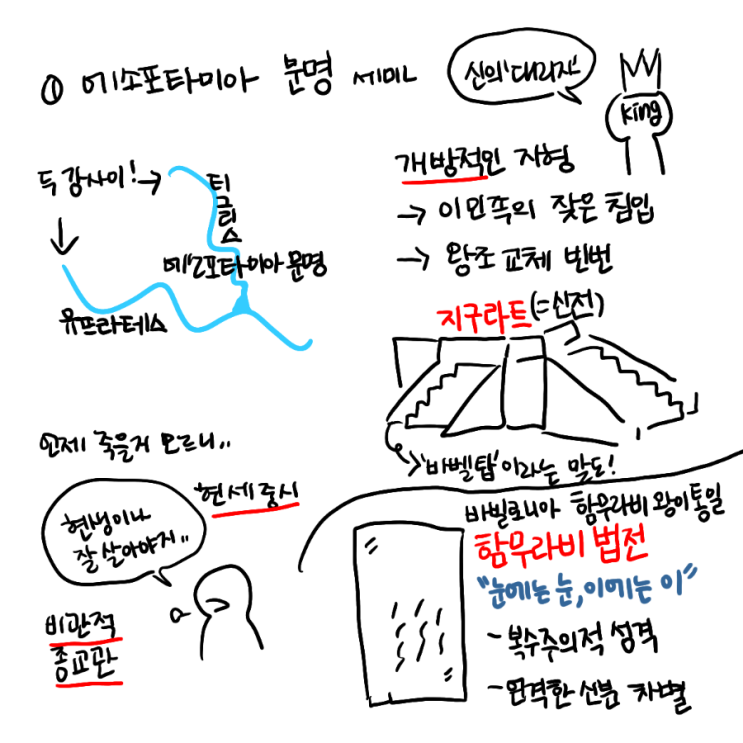 ① 메소포타미아 문명
신의 '대리자'
King
두 강사이!→
티그리스
메소포타미아 문명
유프라테스
개방적인 지형
→ 이민족의 잦은 침입
→ 왕조 교체 빈번
지구라트(=신전)
→'바벨탑'이라는 말도!
언제 죽을지 모르니..
현세중시
현생이나
잘 살아야지..
비관적
종교관
바빌로니아 함무라비 왕이 통일
함무라비 법전
"눈에는 눈, 이에는 이"
- 복수주의적 성격
- 엄격한 신분 차별